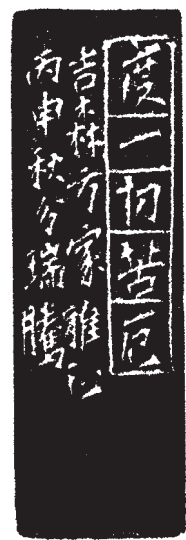 度一切苦厄
吉林方家雅正
丙申秋分瑞騰